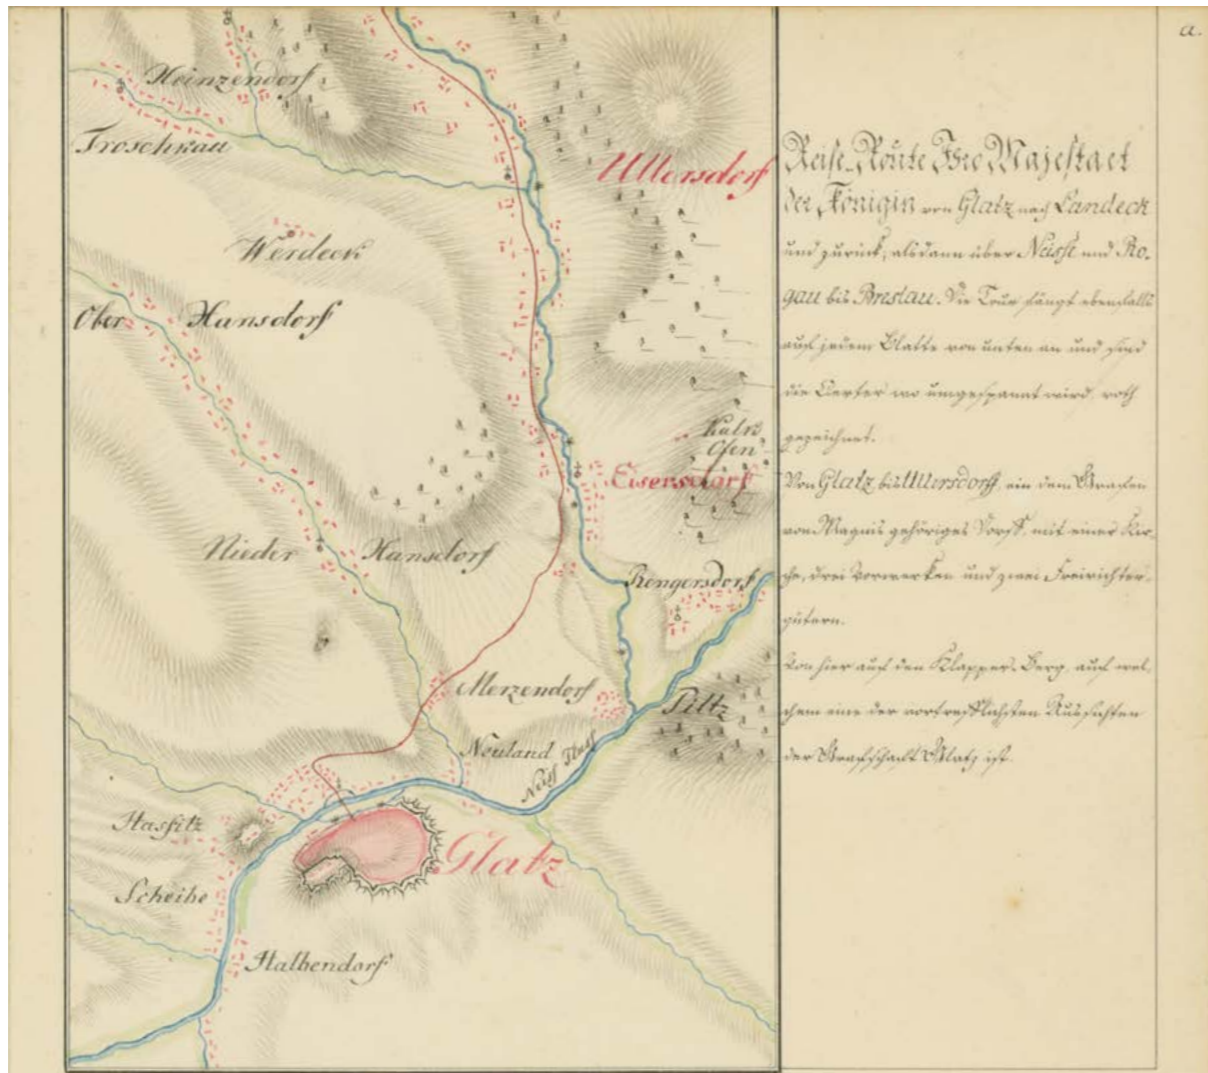 a.
Heinzendorf
Troschkau
Ullersdorf
Werdeck
Ober Hansdorf
Kalk
Ofen
Eisersdorf
Nieder Hansdorf
Rengersdorf
Merzendorf
Piltz
Neuland
Neiss Fluss
Hassitz
Glatz
Scheibe
Halbendorf
Reise-Route Ihro Majestaet
der Königin von Glatz nach Landeck
und zurück, alsdann über Neisse und Ro-
gau bis Breslau. Die Tour fängt ebenfalls
auf jedem Blatte von unten an und sind
die Oerter wo umgespannt wird, roth
gezeichnet.
Von Glatz bis Ullersdorff, ein dem Grafen
von Magnis gehöriges Dorff, mit einer Kir-
che, drei Vorwerken und zwei Freirichter-
gütern.
Von hier auf den Klapper-Berg, auf wel-
chem eine der vortrefflichsten Aussichten
der Grafschaft Glatz ist.